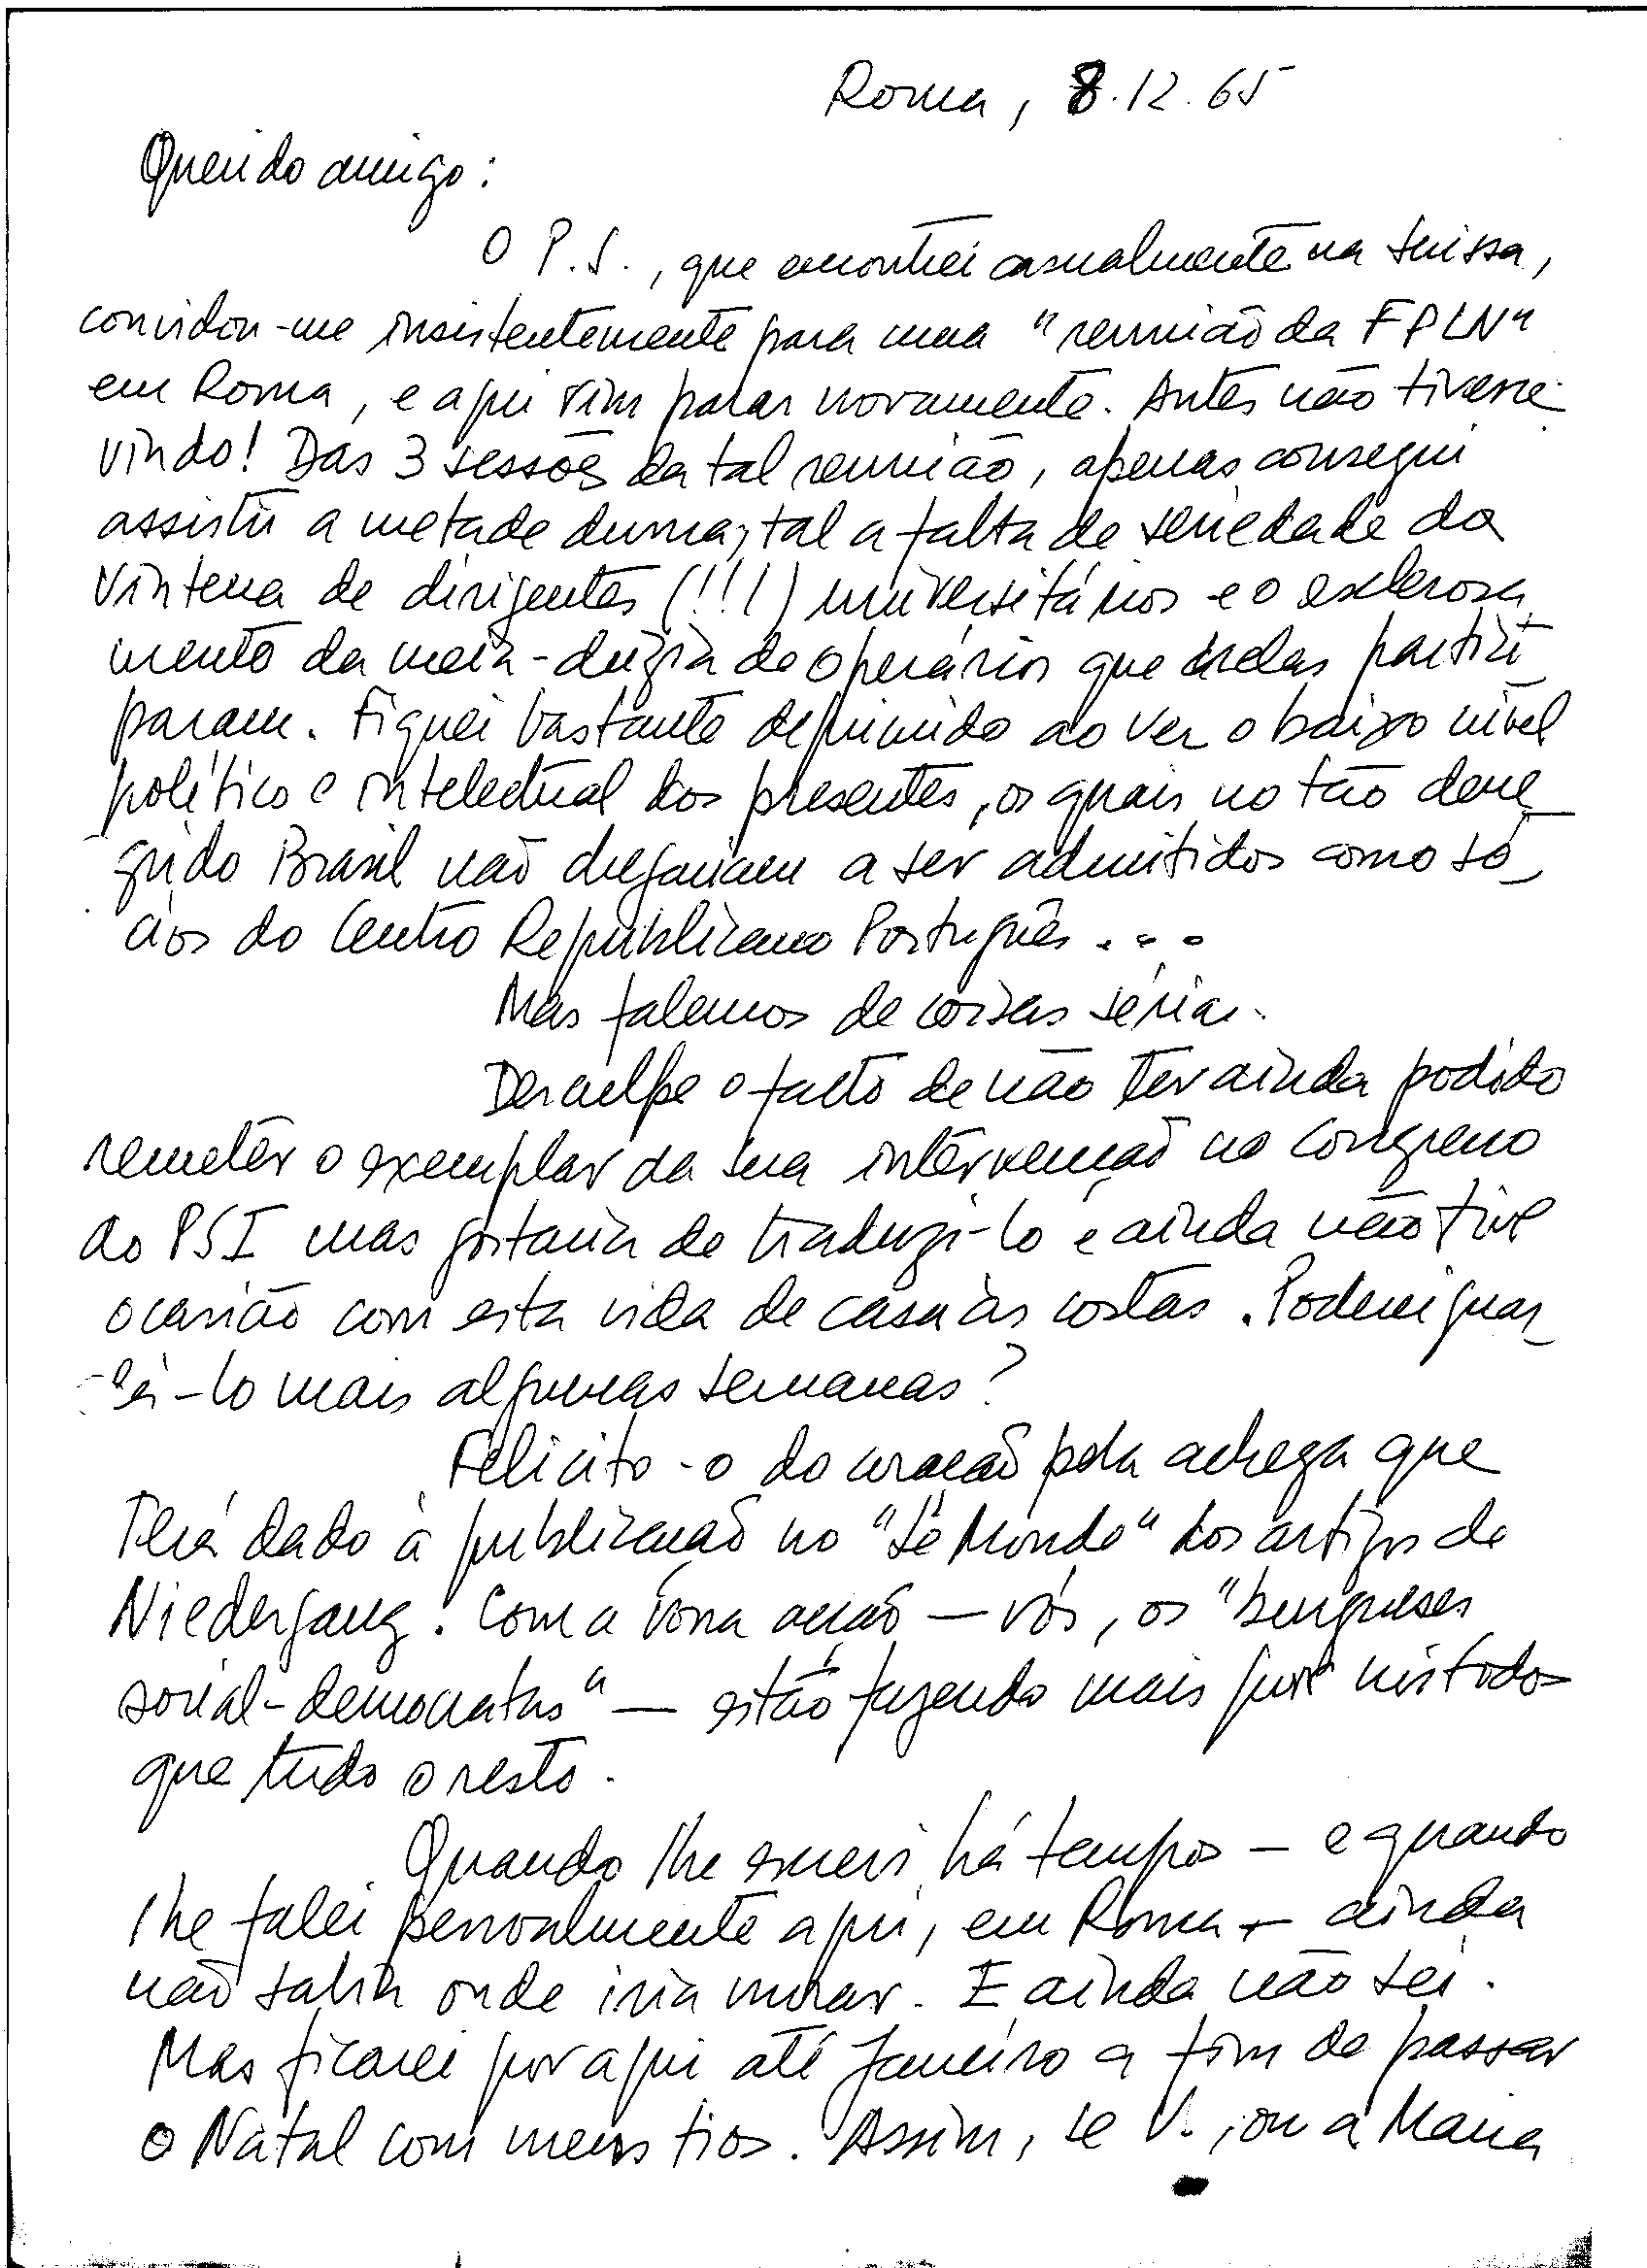 Roma, 8.12.65
Querido amigo:
O P.S., que encontrei casualmente na Suissa,
convidou-me insistentemente para uma "reunião da FPLN"
em Roma, e aqui vim parar novamente. Antes não tivesse
vindo! Das 3 sessões da tal reunião, apenas consegui
assistir a metade duma, tal a falta de seriedade da
vintena de dirigentes (!!!) universitários e o esclerosa
mento da meia-dúzia de operários que nelas partici
param. Fiquei bastante deprimido ao ver o baixo nível
político e intelectual dos presentes, os quais no tão dene_
grido Brasil não chegariam a ser admitidos como só_
cios do Centro Republicano Português...
Mas falemos de coisas sérias.
Desculpe o facto de não ter ainda podido
remeter o exemplar da sua intervenção no Congresso
do PSI mas gostaria de traduzi-lo e ainda não tive
ocasião com esta vida de casa às costas. Poderei guar_
dá-lo mais algumas semanas?
Felicito-o do coração pela achega que
terá dado à publicação no "Le Monde" dos artigos de
Niedergang. Com a vossa acção — vós, os "burgueses
social-democratas" — estão fazendo mais que todos
que tudo o resto.
Quando lhe escrevi, há tempos — e quando
lhe falei pessoalmente aqui, em Roma — ainda
não sabia onde iria morar. E ainda não sei.
Mas ficarei por aqui até Janeiro a fim de passar
o Natal com meus tios. Assim, se V., ou a Maria